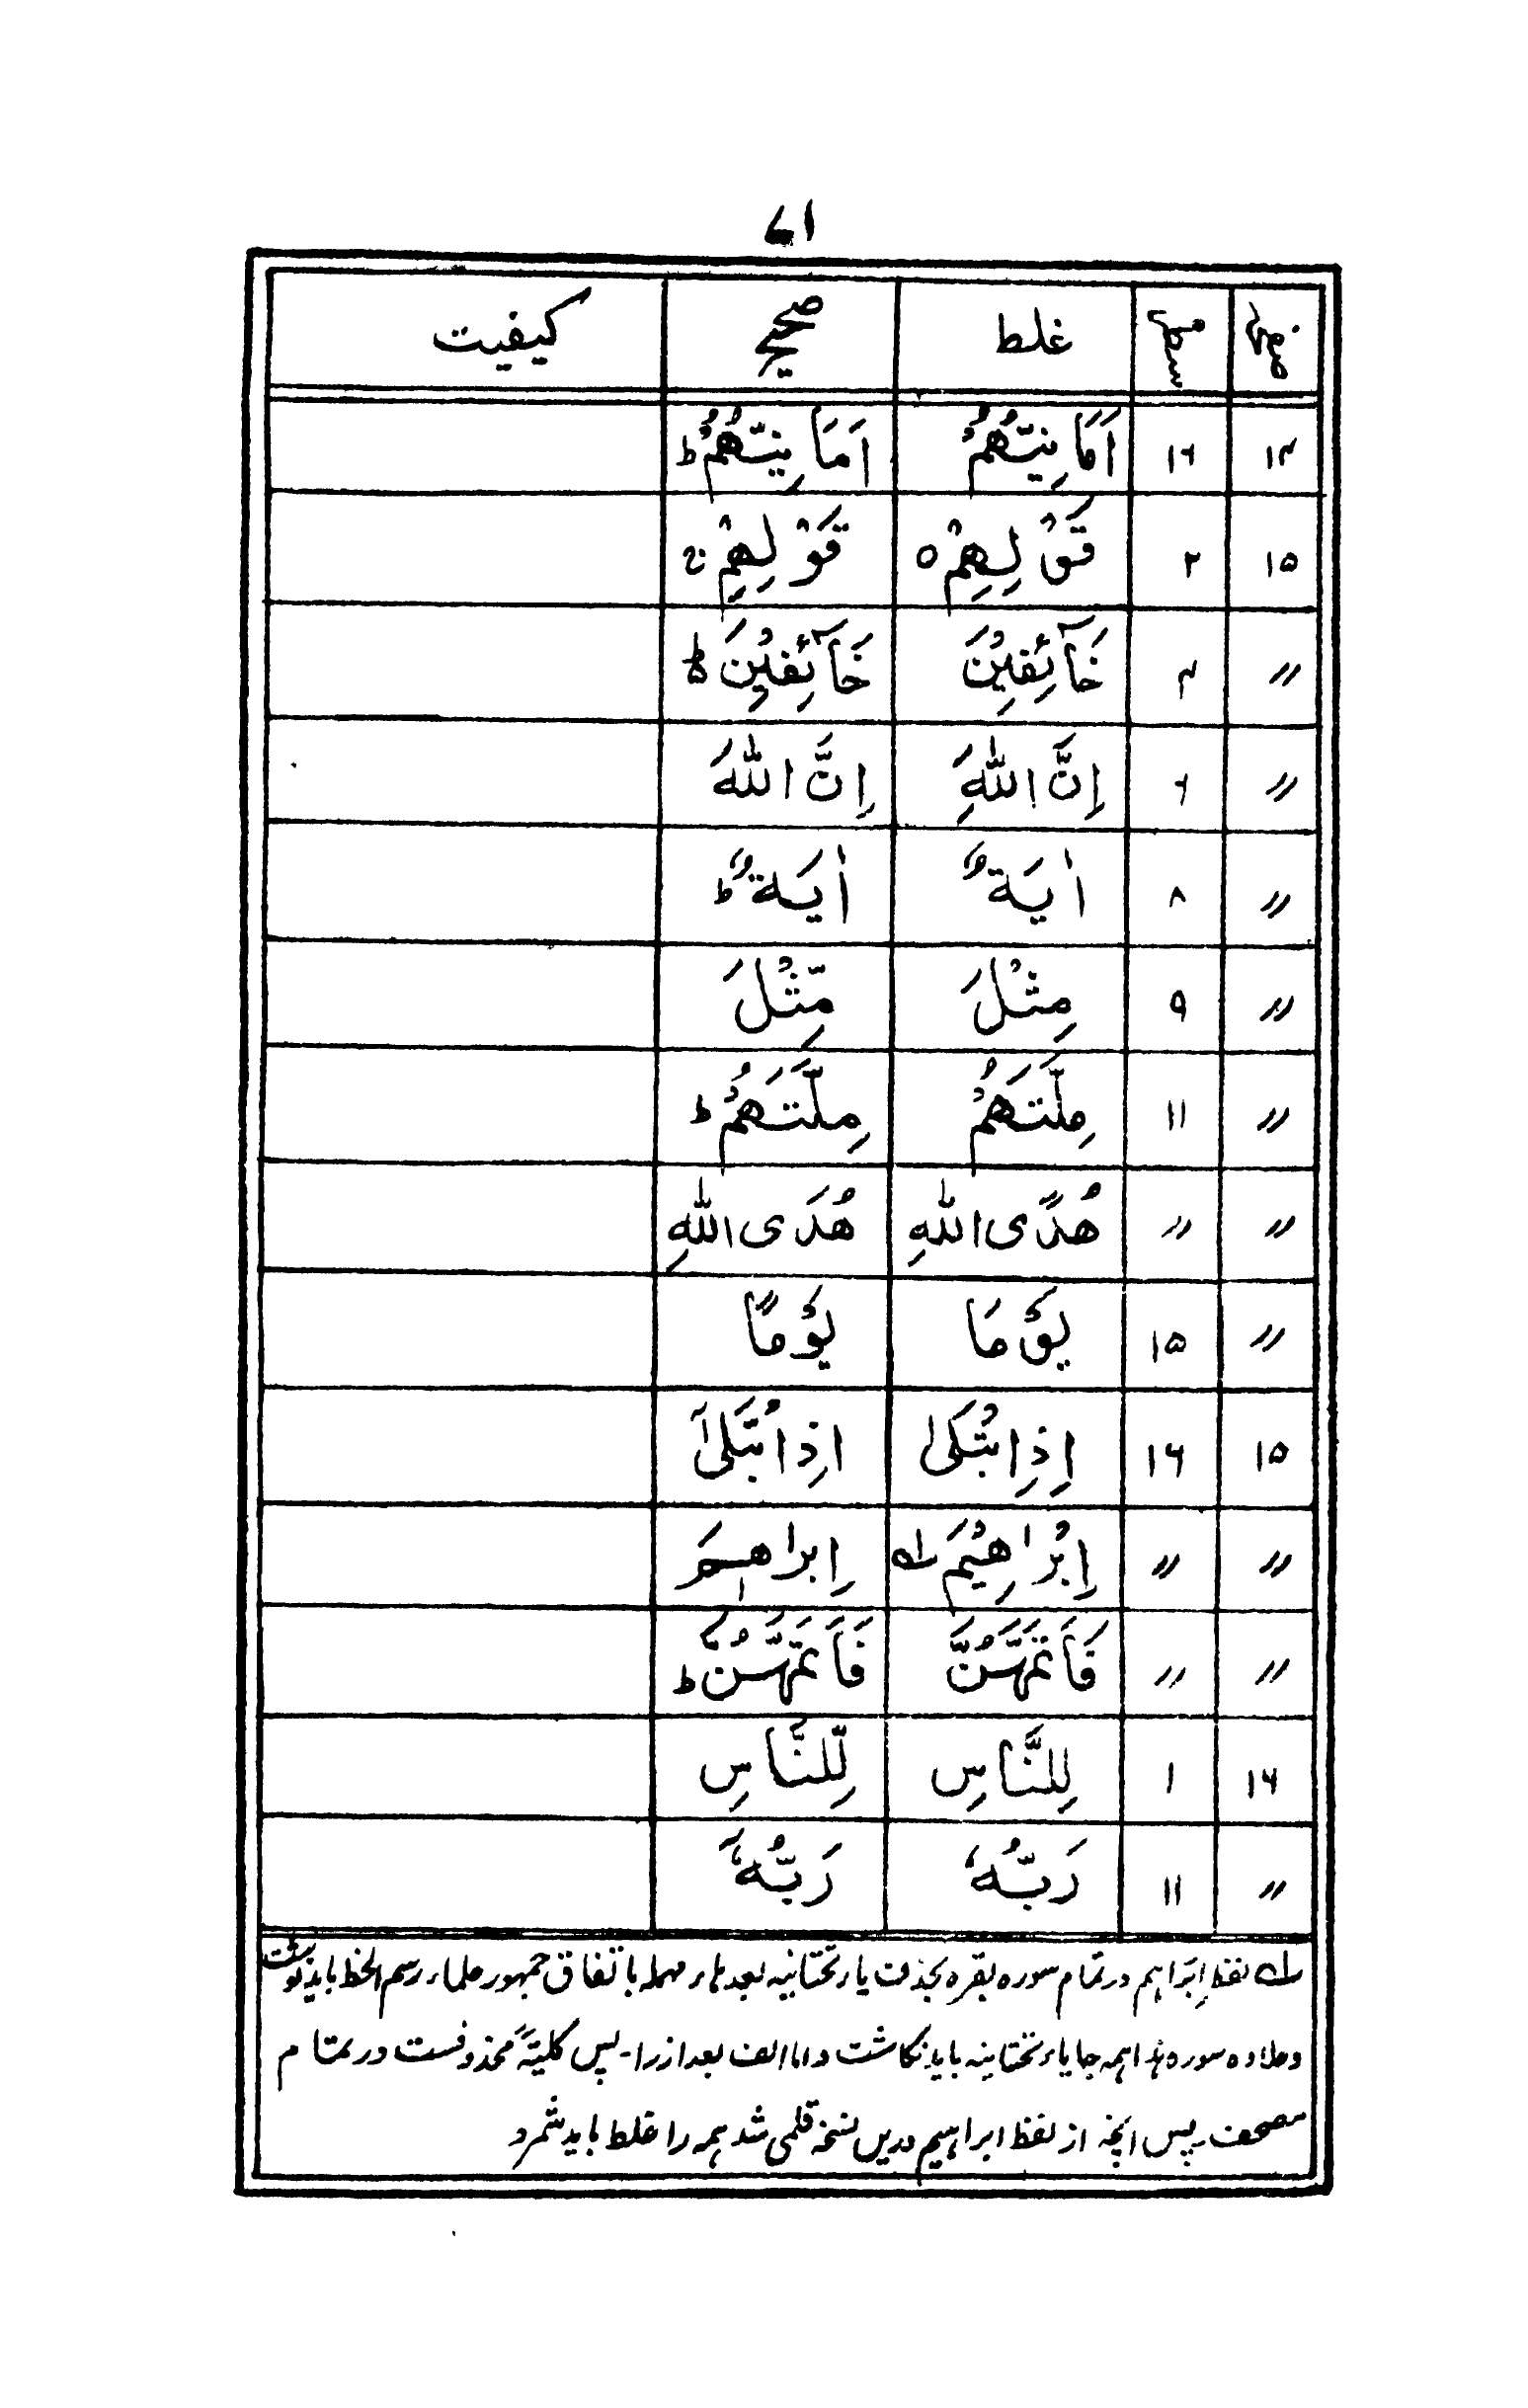 ۷۱
صفحہ سطر غلط صحیح کیفیت
۱۴ ۱۶ اَمَانِیُّهُمْ اَمَانِیُّهُمْ ؕ
۱۵ ۲ قَوْلِهِمْ ○ قَوْلِهِمْ
〃 ۴ خَآئِفِیْنَ خَآئِفِیْنَ ؕ۬
〃 ۶ اِنَّ اللّٰهِ اِنَّ اللّٰهَ
〃 ۸ اٰیَةٌ اٰیَةٌ ؕ
〃 ۹ مِثْلَ مِّثْلَ
〃 ۱۱ مِلَّتَهُمْ مِلَّتَهُمْ ؕ
〃 〃 هُدًی اللّٰهِ هُدَی اللّٰهِ
〃 ۱۵ یَوْمَا یَوْمًا
۱۵ ۱۶ اِذِابْتَلٰی اِذِ ابْتَلٰۤی
〃 〃 اِبْرٰهِیْمَ ؎۱ اِبرٰهٖمَ
〃 〃 فَاَتَمَّهُنَّ فَاَتَمَّهُنَّ ؕ
۱۶ ۱ لِلنَّاسِ لِّلنَّاسِ
〃 ۱۱ رَبُّهٗ رَبُّهٗۤ
؎۱ لفظ اِبْرَاہم در تمام سورہ بقرہ بحذف یاء تحتانیہ بعد ہاء مہملہ باتفاق جمہور علماء رسم الخط باید نوشت
و علاوہ سورہ ہذا ہمہ جا یاء تحتانیہ باید نگاشت و اما الف بعد از را۔ پس کلیتہً محذوفست در تمام
مصحف۔ پس انچہ از لفظ ابراہیم دریں نسخہ قلمی شد ہمہ را غلط باید شمرد